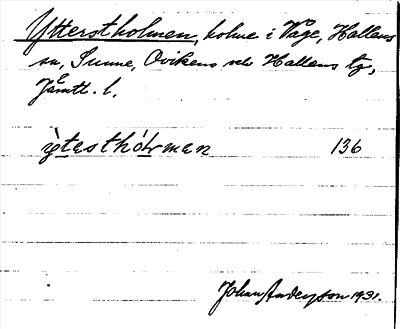 Ytterstholmen, holme i Våge, Hallens
sn, Sunne, Ovikens och Hallens tg,
Jämtl. l.
ỳtesthólmen 136
Johan Anderson 1931.